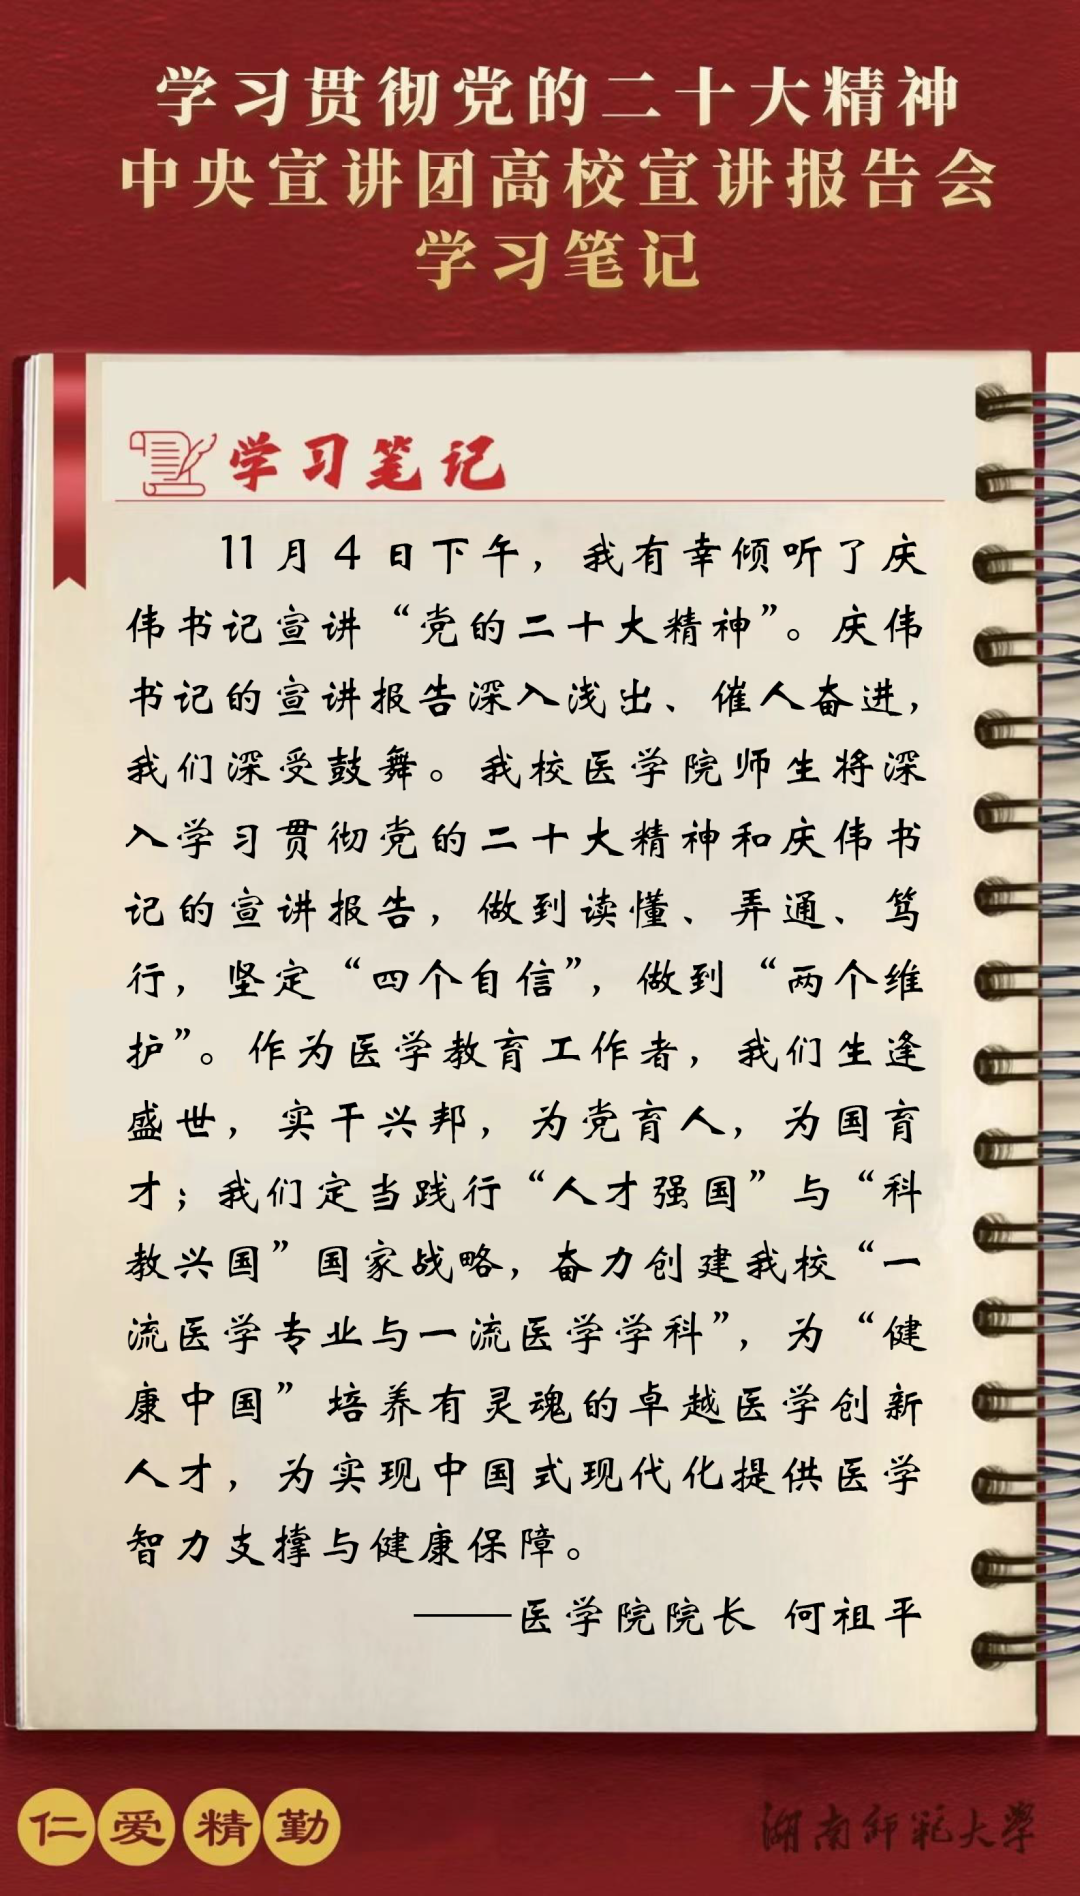 学习贯彻党的二十大精神
中央宣讲团高校宣讲报告会
学习笔记
学习笔记
11月4日下午，我有幸倾听了庆
伟书记宣讲“党的二十大精神”。庆伟
书记的宣讲报告深入浅出、催人奋进，
我们深受鼓舞。我校医学院师生将深
入学习贯彻党的二十大精神和庆伟书
记的宣讲报告，做到读懂、弄通、笃
行，坚定“四个自信”，做到“两个维
护”。作为医学教育工作者，我们生逢
盛世，实干兴邦，为党育人，为国育
才；我们定当践行“人才强国”与“科
教兴国”国家战略，奋力创建我校“一
流医学专业与一流医学学科”，为“健
康中国”培养有灵魂的卓越医学创新
人才，为实现中国式现代化提供医学
智力支撑与健康保障。
——医学院院长 何祖平
仁爱精勤
湖南师范大学